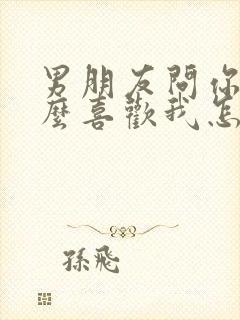 男朋友問你
麼喜歡我怎
孫飛